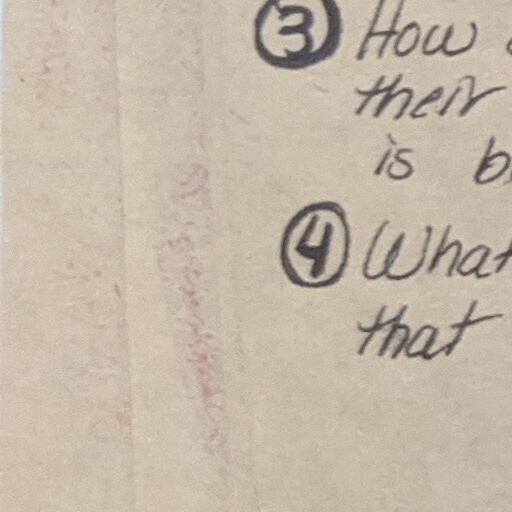 ③ How
their
is
④ What
that